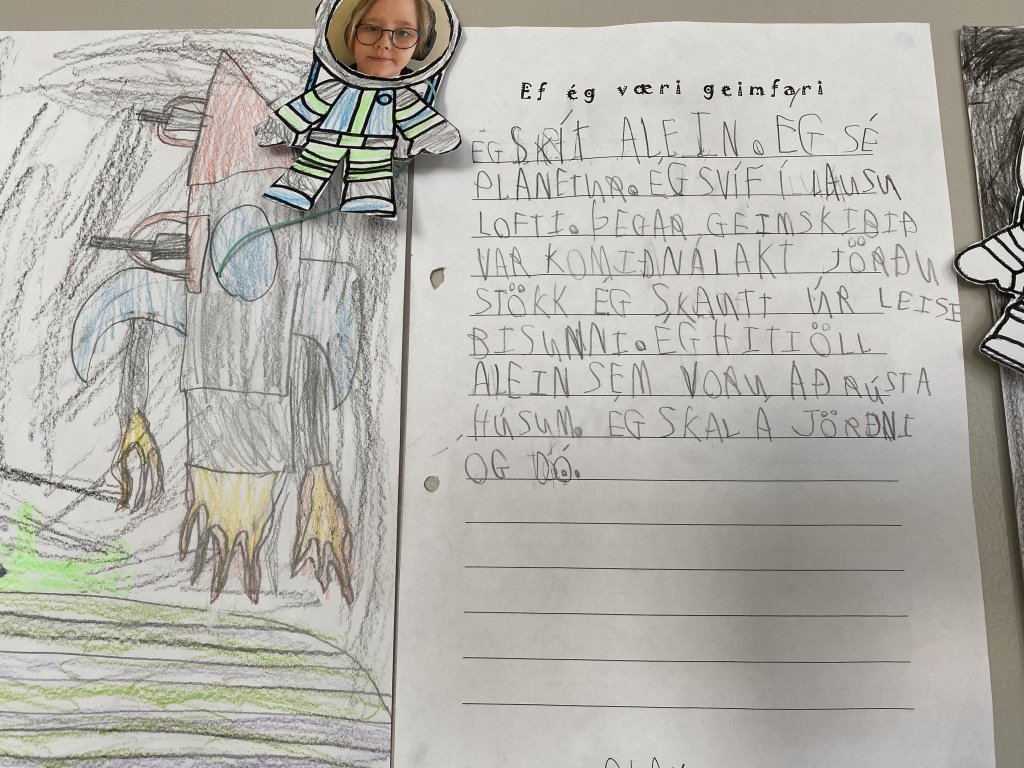 Ef ég væri geimfari
ÉG SKÍT ALEIN. EG SÉ
PLANETUR. ÉG SVÍF Í LAUSU
LOFTI. ÞEGAR GEIMSKIBIÐ
VAR KOMIÐNÁLAKT JÖRÐU
STÖKK ÉG SKAUTI ÚR LEISE
BISUNNI. ÉG HITIÖLL
ALEIN SEM VORU AÐ RÚSTA
HÚSUM. ÉG SKAL A JÖRÐNI
OG DÓ.